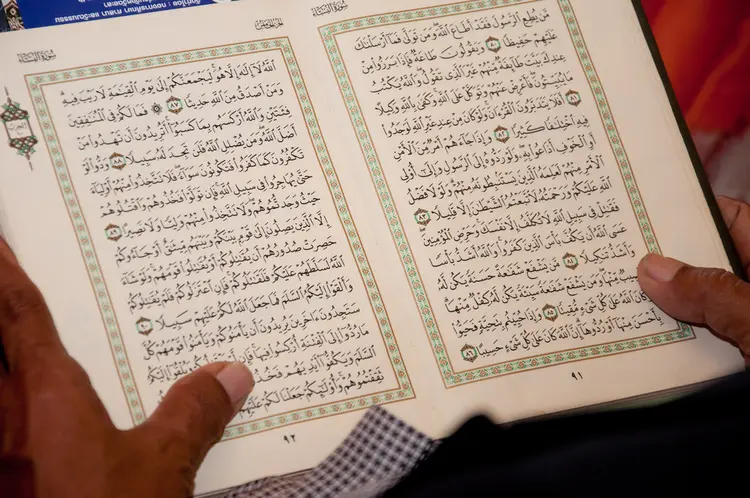 سُورَةُ النِّسَاءِ
مَّن يُطِعِ ٱلرَّسُولَ فَقَدْ أَطَاعَ ٱللَّهَ وَمَن تَوَلَّىٰ فَمَآ أَرْسَلْنَٰكَ
عَلَيْهِمْ حَفِيظًا ٨٠ وَيَقُولُونَ طَاعَةٌ فَإِذَا بَرَزُوا۟ مِنْ
عِندِكَ بَيَّتَ طَآئِفَةٌ مِّنْهُمْ غَيْرَ ٱلَّذِى تَقُولُ وَٱللَّهُ يَكْتُبُ
مَا يُبَيِّتُونَ فَأَعْرِضْ عَنْهُمْ وَتَوَكَّلْ عَلَى ٱللَّهِ وَكَفَىٰ بِٱللَّهِ وَكِيلًا ٨١
أَفَلَا يَتَدَبَّرُونَ ٱلْقُرْءَانَ وَلَوْ كَانَ مِنْ عِندِ غَيْرِ ٱللَّهِ لَوَجَدُوا۟
فِيهِ ٱخْتِلَٰفًا كَثِيرًا ٨٢ وَإِذَا جَآءَهُمْ أَمْرٌ مِّنَ ٱلْأَمْنِ
أَوِ ٱلْخَوْفِ أَذَاعُوا۟ بِهِۦ وَلَوْ رَدُّوهُ إِلَى ٱلرَّسُولِ وَإِلَىٰٓ أُو۟لِى
ٱلْأَمْرِ مِنْهُمْ لَعَلِمَهُ ٱلَّذِينَ يَسْتَنۢبِطُونَهُۥ مِنْهُمْ وَلَوْلَا فَضْلُ
ٱللَّهِ عَلَيْكُمْ وَرَحْمَتُهُۥ لَٱتَّبَعْتُمُ ٱلشَّيْطَٰنَ إِلَّا قَلِيلًا ٨٣
فَقَٰتِلْ فِى سَبِيلِ ٱللَّهِ لَا تُكَلَّفُ إِلَّا نَفْسَكَ وَحَرِّضِ ٱلْمُؤْمِنِينَ
عَسَى ٱللَّهُ أَن يَكُفَّ بَأْسَ ٱلَّذِينَ كَفَرُوا۟ وَٱللَّهُ أَشَدُّ بَأْسًا
وَأَشَدُّ تَنكِيلًا ٨٤ مَّن يَشْفَعْ شَفَٰعَةً حَسَنَةً يَكُن لَّهُۥ
نَصِيبٌ مِّنْهَا وَمَن يَشْفَعْ شَفَٰعَةً سَيِّئَةً يَكُن لَّهُۥ كِفْلٌ مِّنْهَا
وَكَانَ ٱللَّهُ عَلَىٰ كُلِّ شَىْءٍ مُّقِيتًا ٨٥ وَإِذَا حُيِّيتُم بِتَحِيَّةٍ فَحَيُّوا۟
بِأَحْسَنَ مِنْهَآ أَوْ رُدُّوهَآ إِنَّ ٱللَّهَ كَانَ عَلَىٰ كُلِّ شَىْءٍ حَسِيبًا ٨٦
٩١
الجُزْءُ الخَامِسُ
سُورَةُ النِّسَاءِ
ٱللَّهُ لَآ إِلَٰهَ إِلَّا هُوَ لَيَجْمَعَنَّكُمْ إِلَىٰ يَوْمِ ٱلْقِيَٰمَةِ لَا رَيْبَ فِيهِ
وَمَنْ أَصْدَقُ مِنَ ٱللَّهِ حَدِيثًا ٨٧ ۞ فَمَا لَكُمْ فِى ٱلْمُنَٰفِقِينَ
فِئَتَيْنِ وَٱللَّهُ أَرْكَسَهُم بِمَا كَسَبُوٓا۟ أَتُرِيدُونَ أَن تَهْدُوا۟ مَنْ
أَضَلَّ ٱللَّهُ وَمَن يُضْلِلِ ٱللَّهُ فَلَن تَجِدَ لَهُۥ سَبِيلًا ٨٨ وَدُّوا۟ لَوْ
تَكْفُرُونَ كَمَا كَفَرُوا۟ فَتَكُونُونَ سَوَآءً فَلَا تَتَّخِذُوا۟ مِنْهُمْ أَوْلِيَآءَ
حَتَّىٰ يُهَاجِرُوا۟ فِى سَبِيلِ ٱللَّهِ فَإِن تَوَلَّوْا۟ فَخُذُوهُمْ وَٱقْتُلُوهُمْ
حَيْثُ وَجَدتُّمُوهُمْ وَلَا تَتَّخِذُوا۟ مِنْهُمْ وَلِيًّا وَلَا نَصِيرًا ٨٩
إِلَّا ٱلَّذِينَ يَصِلُونَ إِلَىٰ قَوْمٍۭ بَيْنَكُمْ وَبَيْنَهُم مِّيثَٰقٌ أَوْ جَآءُوكُمْ
حَصِرَتْ صُدُورُهُمْ أَن يُقَٰتِلُوكُمْ أَوْ يُقَٰتِلُوا۟ قَوْمَهُمْ وَلَوْ شَآءَ
ٱللَّهُ لَسَلَّطَهُمْ عَلَيْكُمْ فَلَقَٰتَلُوكُمْ فَإِنِ ٱعْتَزَلُوكُمْ فَلَمْ يُقَٰتِلُوكُمْ
وَأَلْقَوْا۟ إِلَيْكُمُ ٱلسَّلَمَ فَمَا جَعَلَ ٱللَّهُ لَكُمْ عَلَيْهِمْ سَبِيلًا ٩٠
سَتَجِدُونَ ءَاخَرِينَ يُرِيدُونَ أَن يَأْمَنُوكُمْ وَيَأْمَنُوا۟ قَوْمَهُمْ كُلَّ
مَا رُدُّوٓا۟ إِلَى ٱلْفِتْنَةِ أُرْكِسُوا۟ فِيهَا فَإِن لَّمْ يَعْتَزِلُوكُمْ وَيُلْقُوٓا۟ إِلَيْكُمُ
ٱلسَّلَمَ وَيَكُفُّوٓا۟ أَيْدِيَهُمْ فَخُذُوهُمْ
ثَقِفْتُمُوهُمْ وَأُو۟لَٰٓئِكُمْ جَعَلْنَا لَكُمْ عَلَيْهِمْ
٩٢